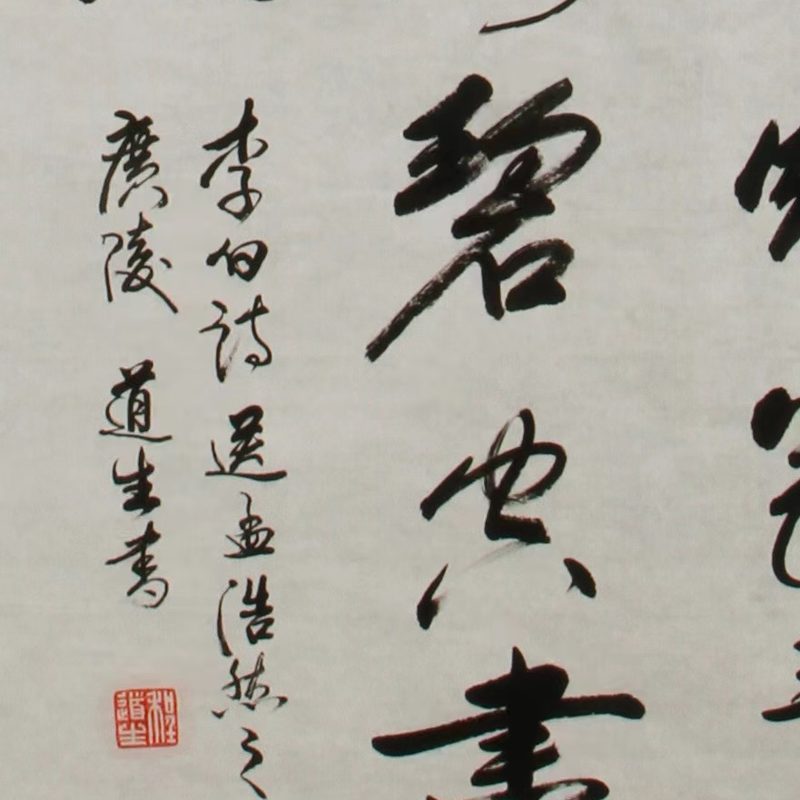 碧空盡
李白詩送孟浩然之
廣陵 道生書
程道生